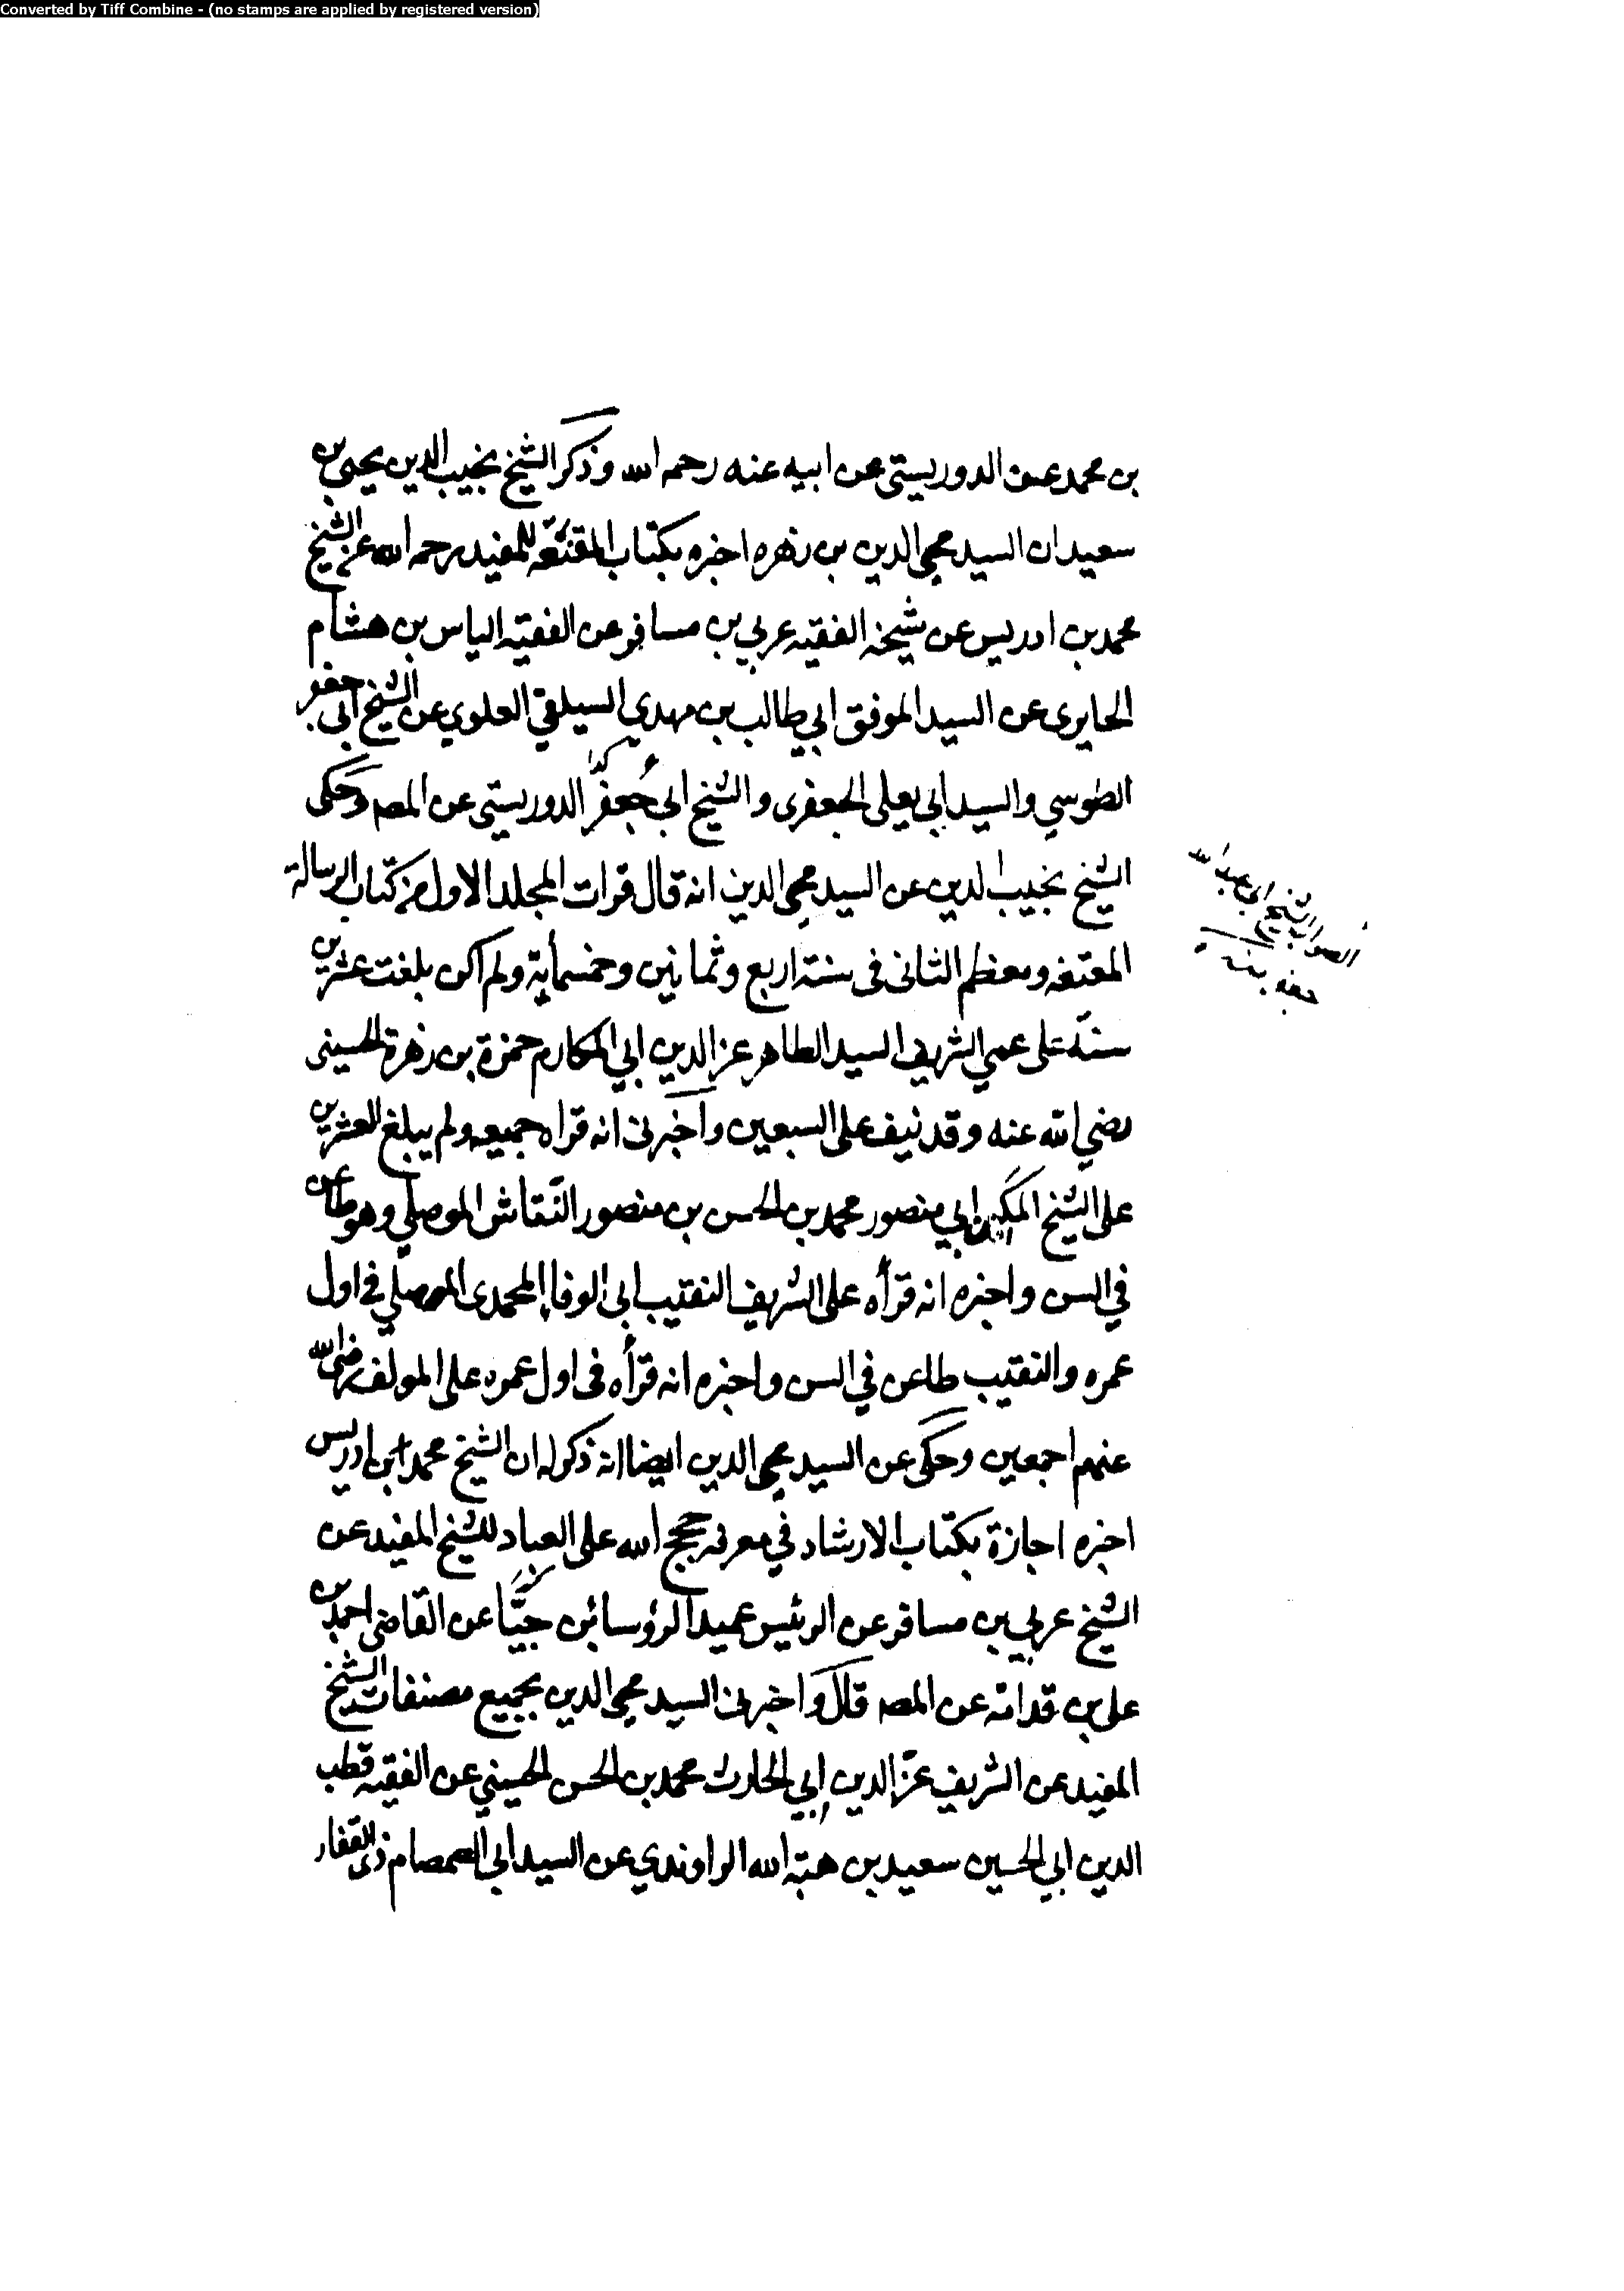 Converted by Tiff Combine - (no stamps are applied by registered version)
بن محمد عن الدوريستي عن ابيه عنه رحمه الله وذكر الشيخ نجيب الدين يحيى بن
سعيد ان السيد محيي الدين بن زهره اخبره بكتاب المقنعه للمفيد رحمه الله عن الشيخ
محمد بن ادريس عن شيخه الفقيه عربي بن مسافر عن الفقيه الياس بن هشام
الحايرى عن السيد الموفق ابي طالب بن مهدي السيلقي العلوي عن الشيخ ابى جعفر
الطوسي والسيد ابي يعلى الجعفرى والشيخ ابي جعفر كذا الدوريستى عن المصـ وحكى
الشيخ نجيب الدين عن السيد محيي الدين انه قال قرات المجلد الاول من كتاب الرسالة
المقنعه ومعظم الثانى فى سنة اربع وثمانين وخمسمأية ولم اكن بلغت عشرين
سنة على عمي الشريف السيد الطاهر عز الدين ابي المكارم حمزة بن زهرة الحسينى
رضي الله عنه وقد نيف على السبعين واخبرنى انه قراه جميعه ولم يبلغ العشرين
على الشيخ المكين ابي منصور محمد بن الحسن بن منصور النقاش الموصلي وهو طاعن
في السن واخبره انه قرأه على الشريف النقيب ابى الوفا المحمدى الموصلي في اول
عمره والنقيب طاعن في السن واخبره انه قرأه فى اول عمره على المولف رضى الله
عنهم اجمعين وحكى عن السيد محيي الدين ايضا انه ذكر له ان الشيخ محمد ابن ادريس
اخبره اجازة بكتاب الارشاد في معرفه حجج الله على العباد للشيخ المفيد عن
الشيخ عربي بن مسافر عن الرئيس عميد الرؤسا بن جيّا عن القاضى احمد بن
علي بن قدامة عن المصـ قال واخبرنى السيد محيي الدين بجميع مصنفات الشيخ
المفيد عن الشريف عز الدين ابي الحارث محمد بن الحسن الحسيني عن الفقيه قطب
الدين ابي الحسين سعيد بن هبة الله الراوندي عن السيد ابى الصمصام ذى الفقار
الصواب الشيخ ابي عبد الله
جعفر